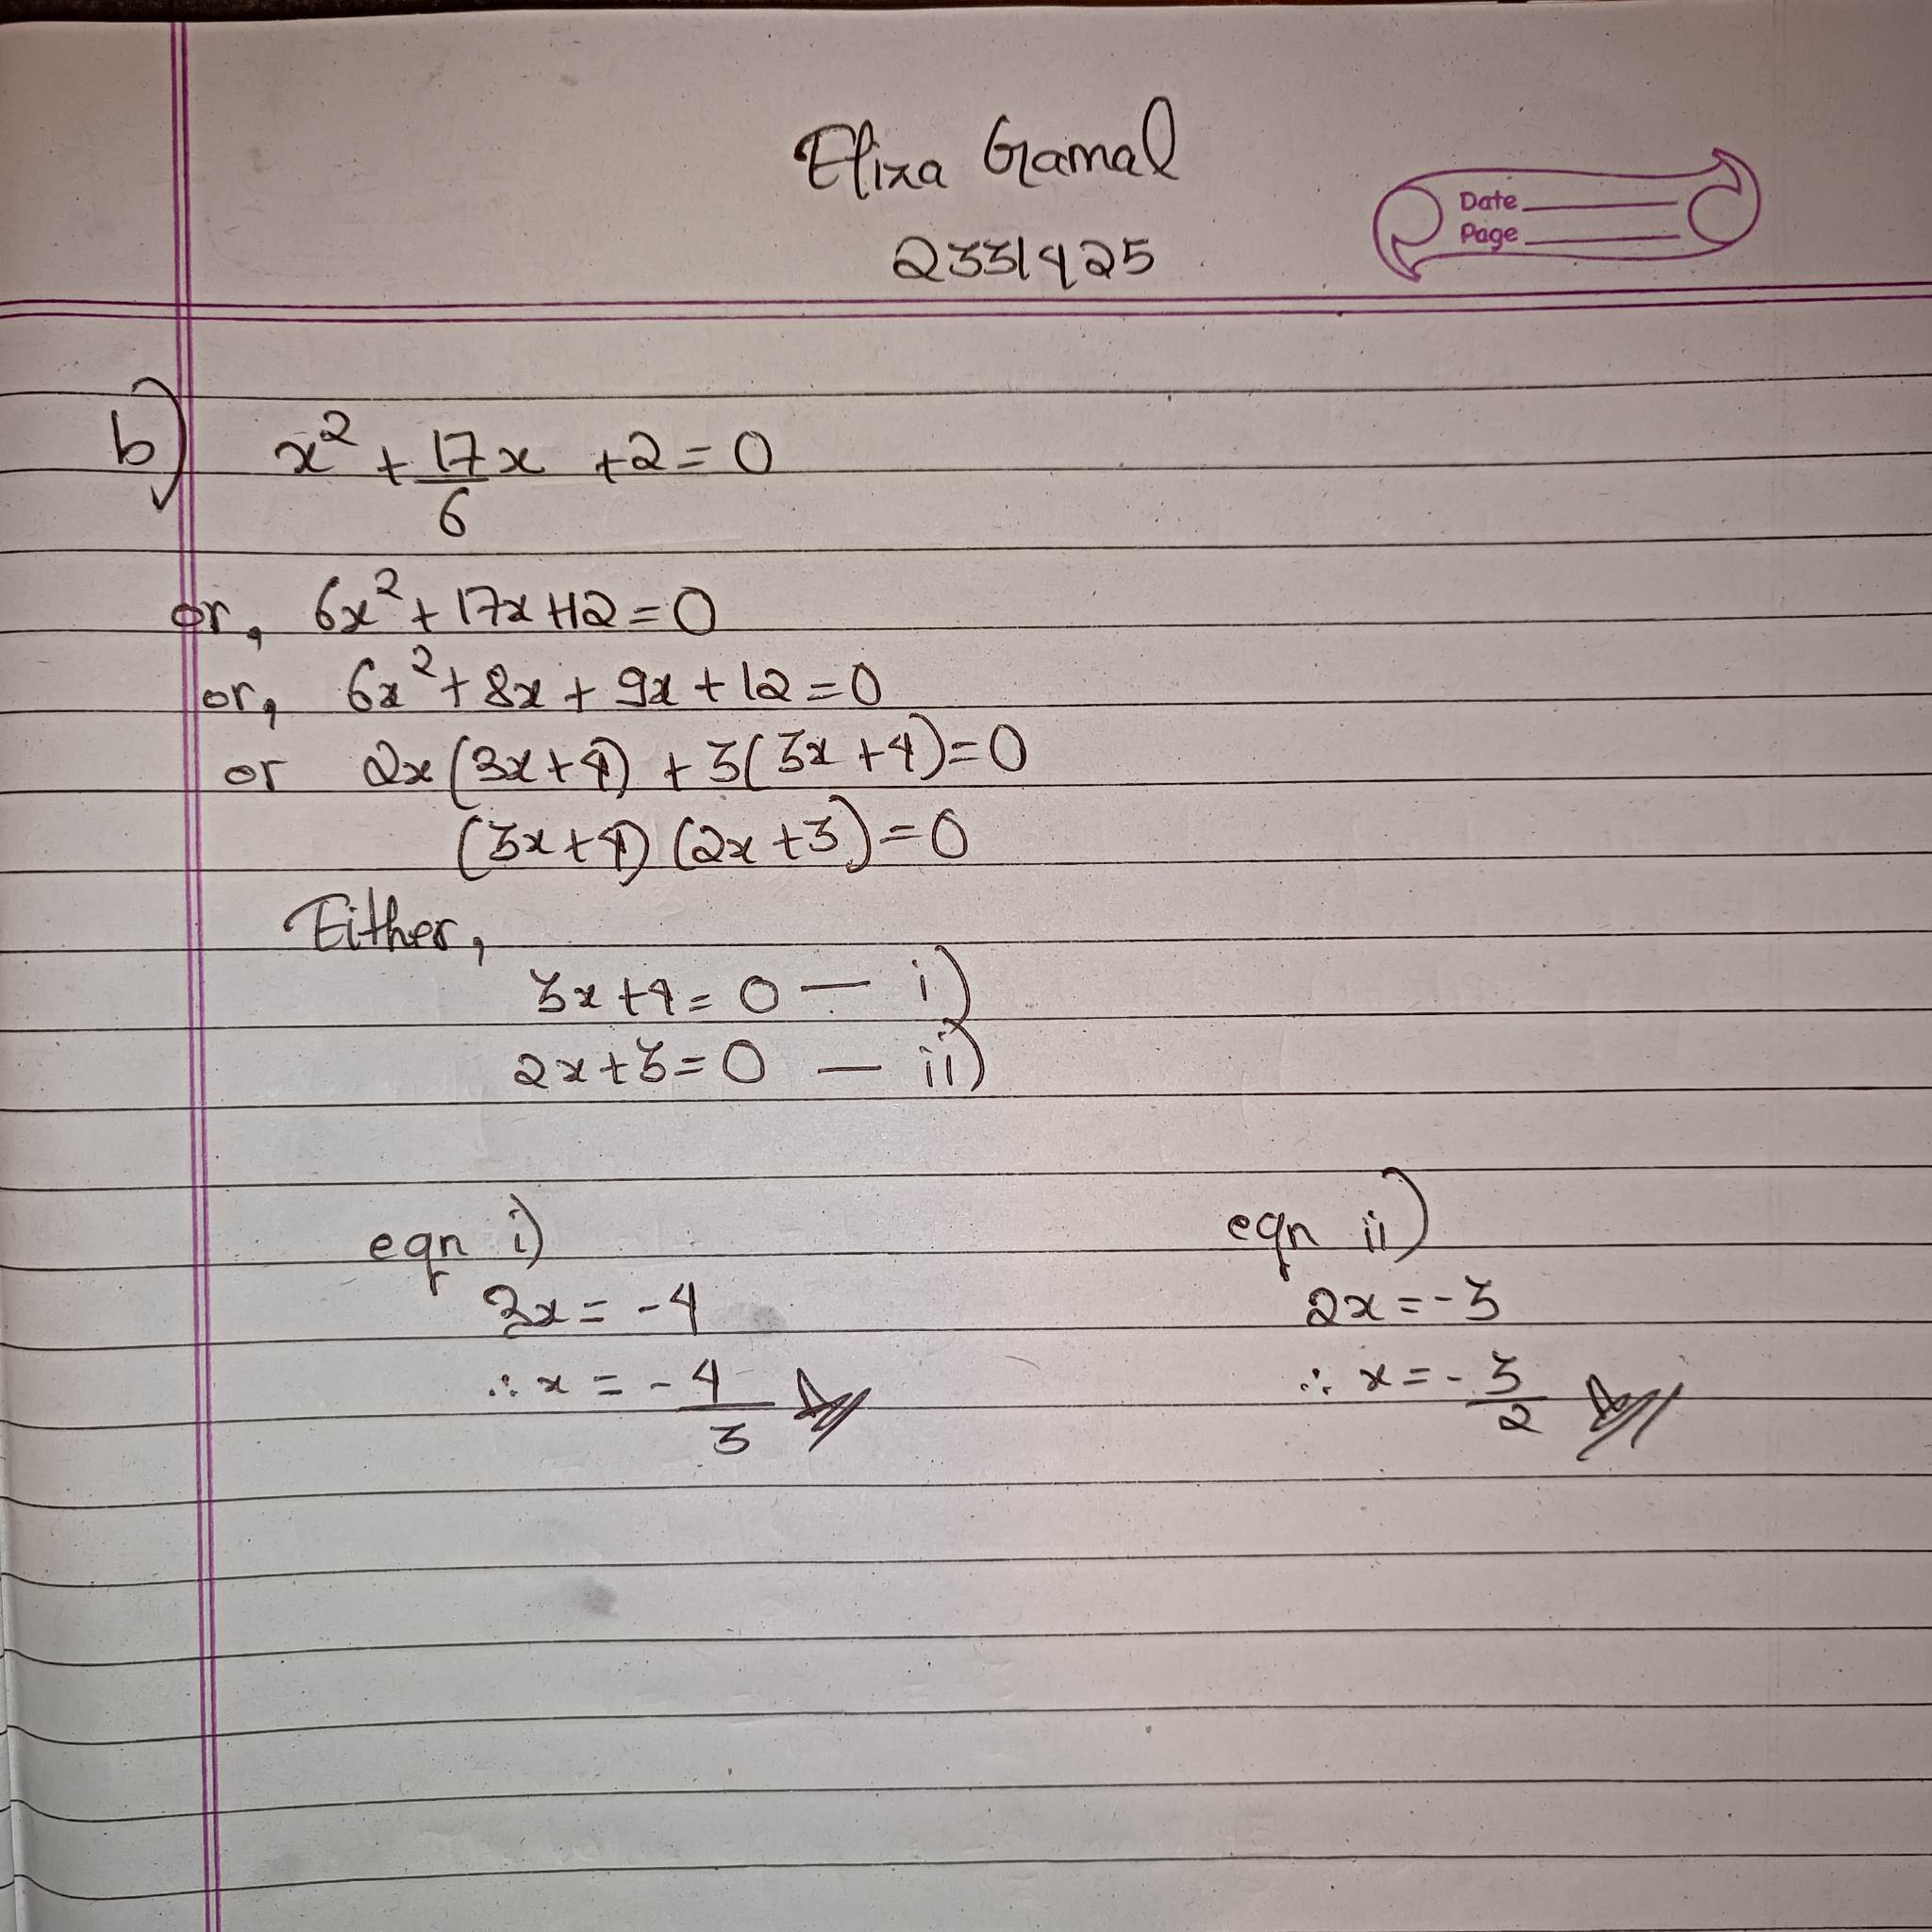 Eliza Gramal
2331425
Date
Page
b) x² + 17/6 x + 2 = 0
or, 6x² + 17x + 12 = 0
or, 6x² + 8x + 9x + 12 = 0
or 2x(3x + 4) + 3(3x + 4) = 0
(3x + 4) (2x + 3) = 0
Either,
3x + 4 = 0 — i)
2x + 3 = 0 — ii)
eqn i)
3x = -4
∴ x = -4/3
eqn ii)
2x = -3
∴ x = -3/2